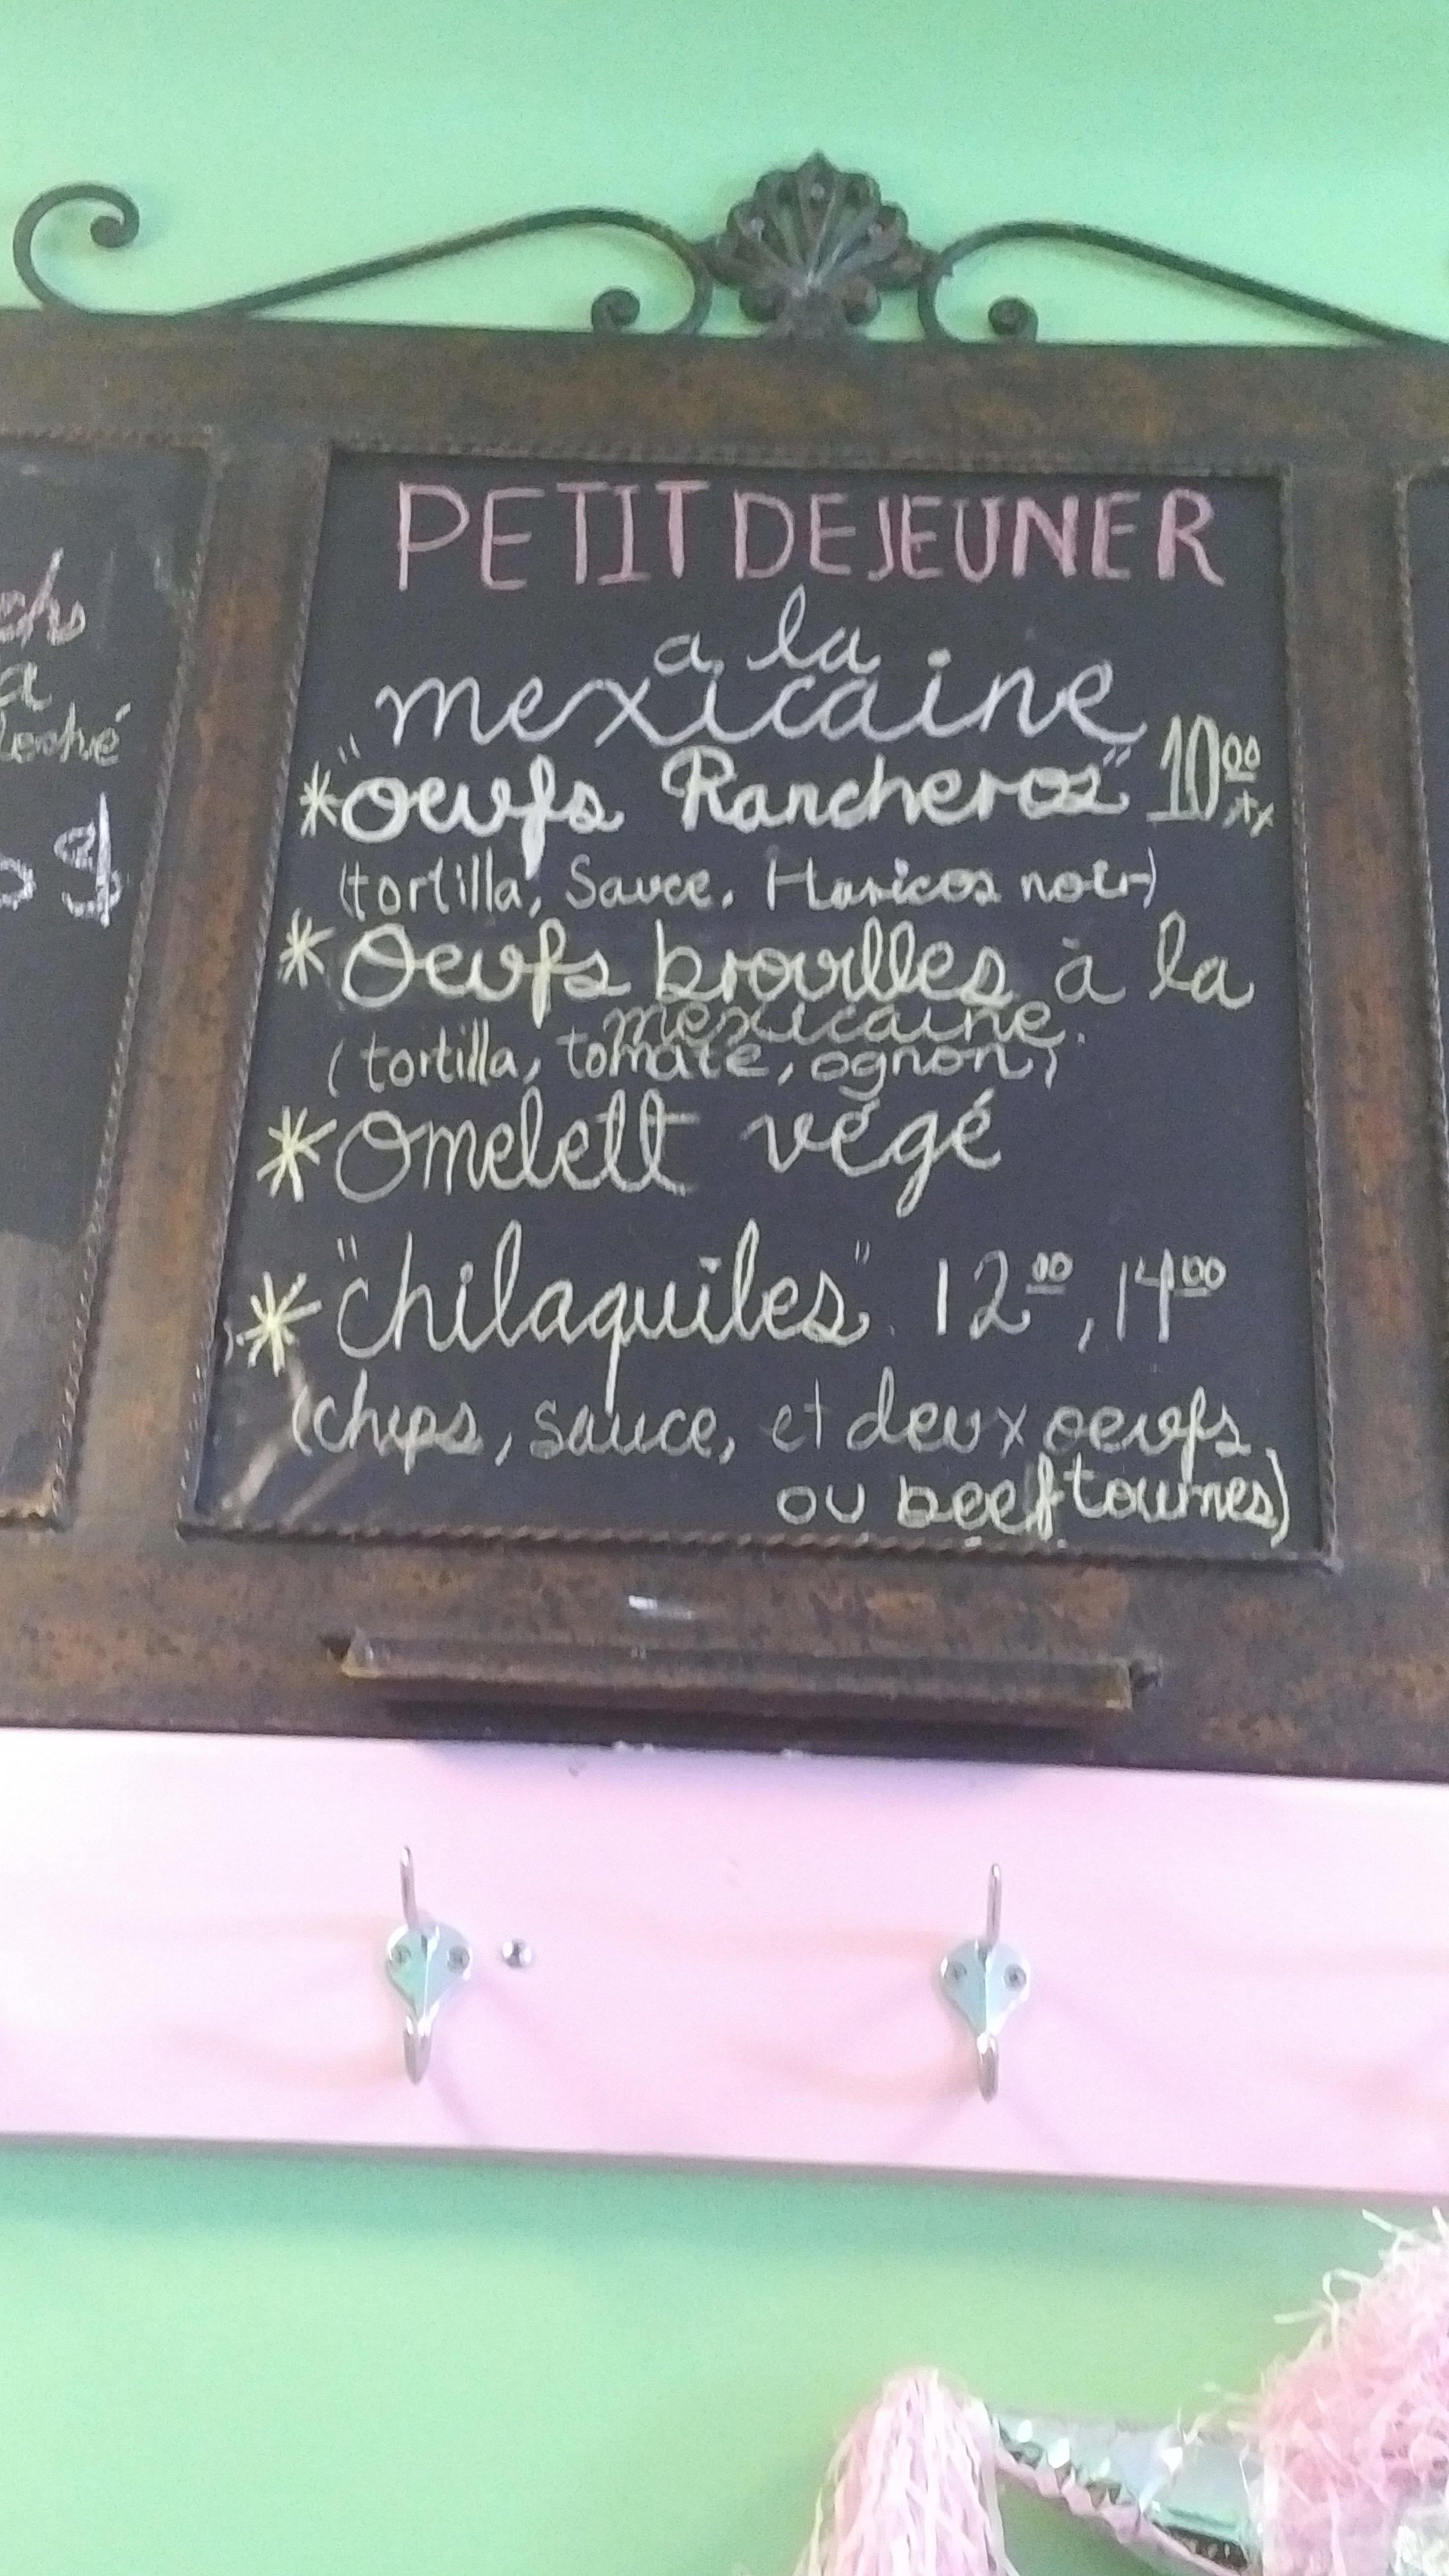 PETIT DEJEUNER
a la
mexicaine
* "oeufs Rancheros" 10 00 +tx
(tortilla, Sauce, Haricos noir)
* Oeufs brouilles à la
mexicaine
(tortilla, tomate, ognon)
* Omelett végé
* "chilaquiles" 12 00, 14 00
(chips, sauce, et deux oeufs
ou beef
a
$